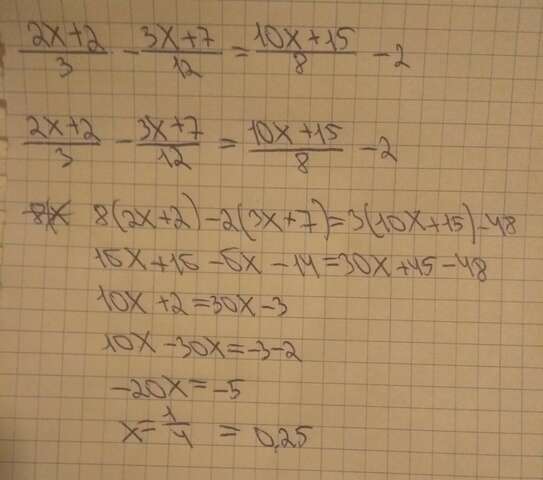 (2x+2)/3 - (3x+7)/12 = (10x+15)/8 - 2
(2x+2)/3 - (3x+7)/12 = (10x+15)/8 - 2
8(2x+2)-2(3x+7)=3(10x+15)-48
16x+16-6x-14=30x+45-48
10x+2=30x-3
10x-30x=-3-2
-20x=-5
x=1/4 = 0,25